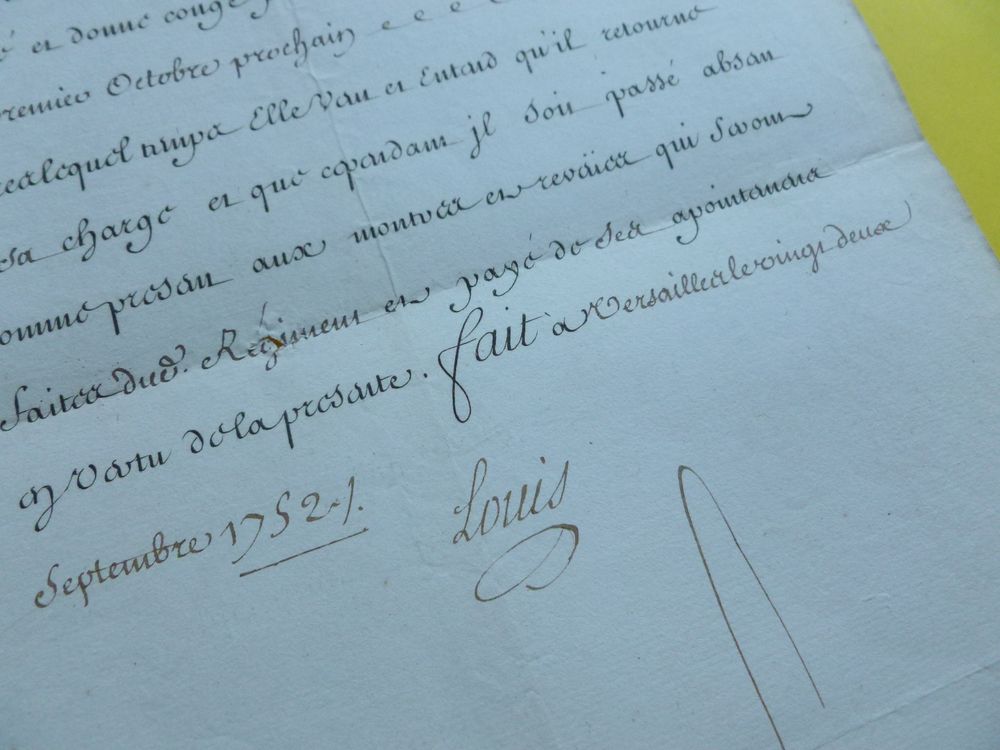 et donne congé
premier Octobre prochain e e e e
lequel temps Elle Veut et Entend qu'il retourne
sa charge et que cependant jl soit passé absent
comme present aux montres et reveües qui Seront
faites dud. Régiment et payé de Ses apointemens
en Vertu de la presente. fait a Versailles le vingt deux
Septembre 1752./.
Louis